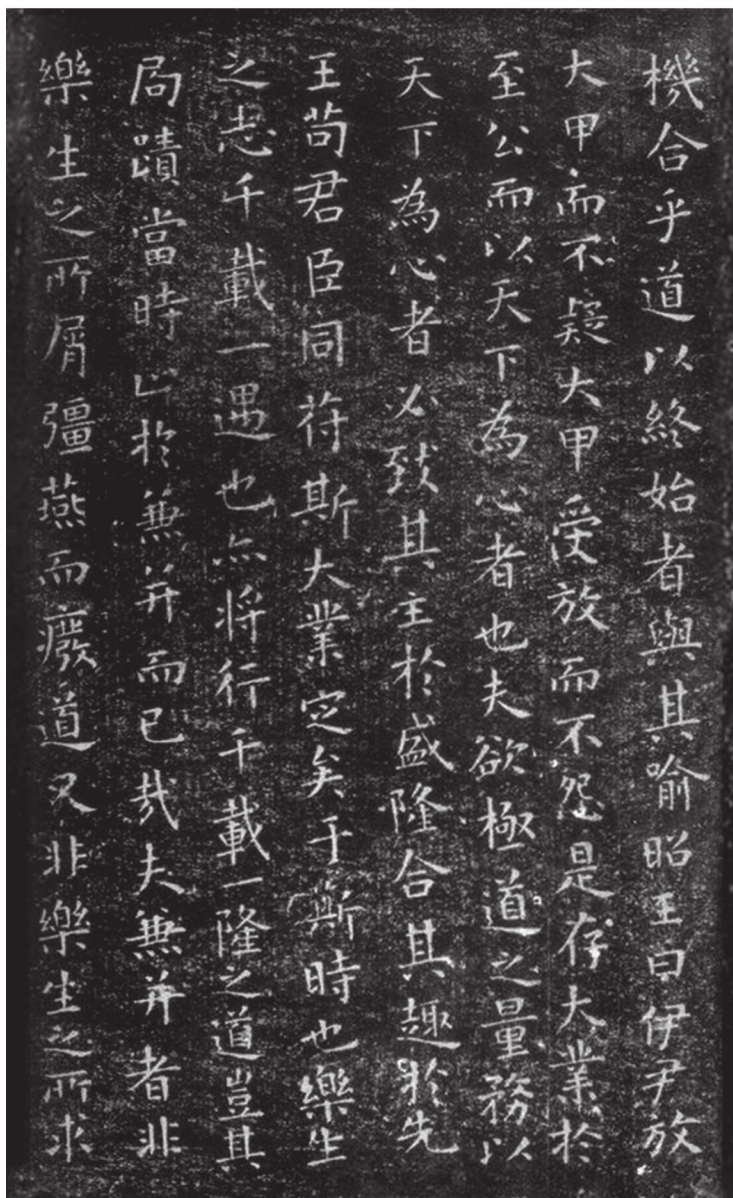 機合乎道以終始者與其喻昭王曰伊尹放
大甲而不疑大甲受放而不怨是存大業於
至公而以天下為心者也夫欲極道之量務以
天下為心者必致其主於盛隆合其趣於先
王苟君臣同苻斯大業定矣于斯時也樂生
之志千載一遇也亦將行千載一隆之道豈其
局蹟當時止於蒹并而已哉夫蒹并者非
樂生之所屑彊燕而癈道又非樂生之所求